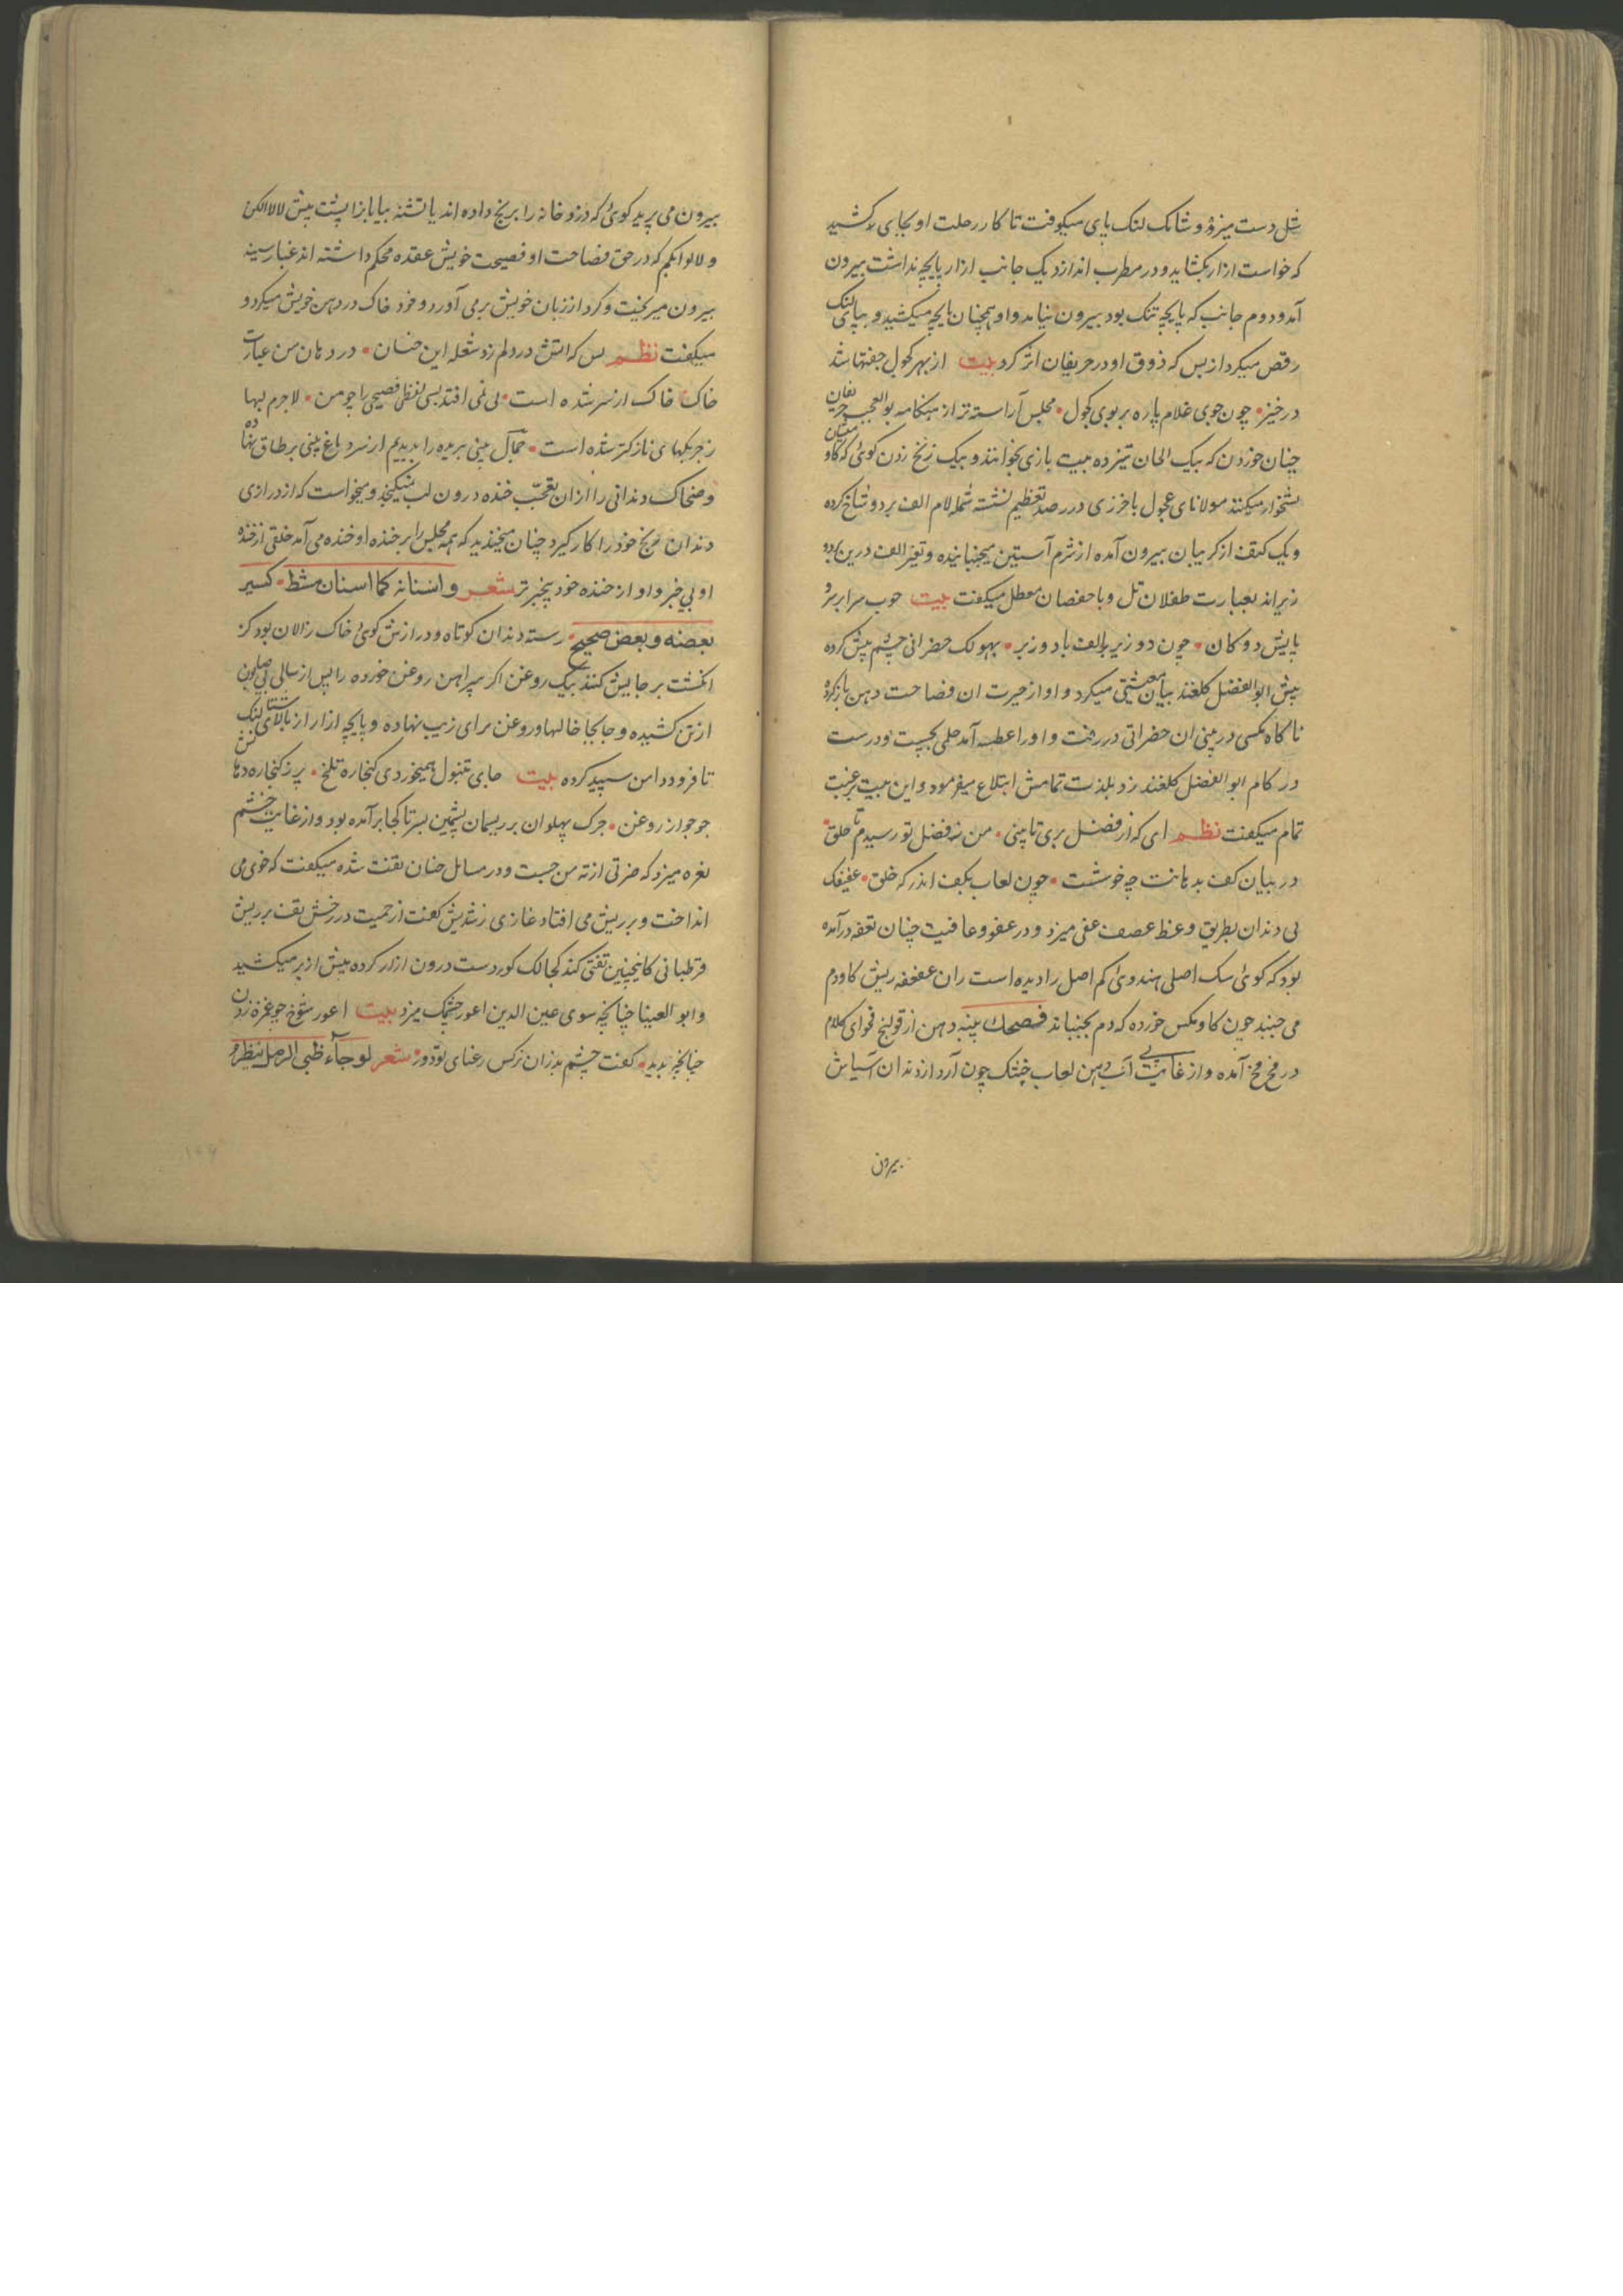 شل دست میزد و شانک لنک پای میکوفت تا کار رحلت او بجای کشید
که خواست ازار بکشاید و در مطرب اندازد یک جانب ازار پایچه نداشت بیرون
آمد و دوم جانب که پایچه تنک بود بیرون نیامد و او همچنان پایچه میکشید و بپای لنک
رقص میکرد از بس که ذوق او در حریفان اثر کرد بیت از بهر کول جفتها شد
در خیز چون جوی غلام پاره بر بوی کول مجلس آراسته تر از هنکامه بوالعجب حریفان
چنان خوردن که بیک الحان تیز ده بیت بازی بخوانند و بیک زنخ زدن کوئی که کاو
نشخوار میکنند مولانای عجول باخرزی در صدر تعظیم نشسته شمله لام الف بر دو شاخ کرده
و یک کتف از کریبان بیرون آمده از شرم آستین میجنبانیده و تغیر الف درین دو
زیر اند بعبارت طفلان تل و باحفصان معطل میکفت بیت خوب سرابر سر و
پایش دو کان چون دو زیر بالف باد و زبر بهولک حضرانی چشم پیش کرده
پیش ابو الفضل کلغند بیان معیشتی میکرد و او از حیرت ان فصاحت دهن باز کرده
ناکاه مکسی در بینی ان حضراتی در رفت و او را عطسه آمد خلمی بجست و درست
در کام ابو الفضل کلغند زد بلذت تمامش ابتلاع میفرمود و این بیت برغبت
تمام میکفت نظم ای که از فضل بری تا بینی من ز فضل تو رسیدم تا حلق
در بیان کف بدهانت چه خوشست چون لعاب بکف اندر که خلق عفیفک
بی دندان بطریق وعظ عصف عفی میزد و در عفو و عافیت چنان تعفه درآمده
بود که کوئی سک اصلی هندوی کم اصل را دیده است ران عفعفه ریش کاودم
می جنبد چون کاو مکس خورده که دم بجنباند فصحک پنبه دهن از قولنج فحوای کلام
در مخ مخ آمده و از غایت بی آب دهن لعاب خشک چون آرد از دندان آسیاش
بیرون
بیرون می پرید کوئی که درو خانه را برنج داده اند یا تشنه بیابانرا پشت پیش لالا الکن
و لالو ابکم که در حق فصاحت او فصیحت خویش عقده محکم داشته اند غبار سینه
بیرون میریخت و کرد از زبان خویش برمی آورد و خود خاک در دهن خویش میکرد و
میکفت نظم بس که آتش در دلم زد شعله این خسان در دهان من عبارت
خاک خاک از سر شده است بی نمی افتد بسی لفظ فصیحی را چو من لاجرم لبها
ز جربکهای نازکتر شده است جمال بینی بریده را بدیدم از سر دماغ بینی بر طاق نهاده
و ضحاک دندانی را از ان تعجب خنده درون لب نمیکنجد و میخواست که از درازی
دندان زنخ خود را کار کیرد چنان میخندید که همه مجلس را بر خنده او خنده می آمد خلقی از خنده
او بی خبر و او از خنده خود بیخبرتر شعر و اسنانه کما اسنان مشط کسیر
بعضه و بعض صحیح رسته دندان کوتاه و درازش کوئی خاک زالان بود کز
انکشت بر جایش کنند بیک روغن اکر پیراهن روغن خورده را پس از سالی بی صابون
از تن کشیده و جابجا خالها و روغن برای زیب نهاده و پایچه ازار از بالای شتالنک
تا فرود دامن سپید کرده بیت جای تنبول همیخوردی کنجاره تلخ پر ز کنجاره دهانش
جو جواز روغن جرک پهلوان بر ریسمان پشمین بسر تا کجا برآمده بود و از غایت خشم
نعره میزد که ضرتی از ته من جست و در مسائل چنان تفت شده میکفت که خوی می
انداخت و بر ریش می افتاد غازی زشدیش کفت از حمیت در رخش تف بر ریش
قرطبانی کاینچنین تفتی کند کجالک کور دست درون ازار کرده بیش از بر میکشید
و ابو العینا چنانکه سوی عین الدین اعور چشمک میزد بیت اعور شوخ چو غمزه زدن
چنانچه بدید کفت چشم بد زان نرکس رعنای تو دور شعر لو جآء ظبی الرمل ینظر و